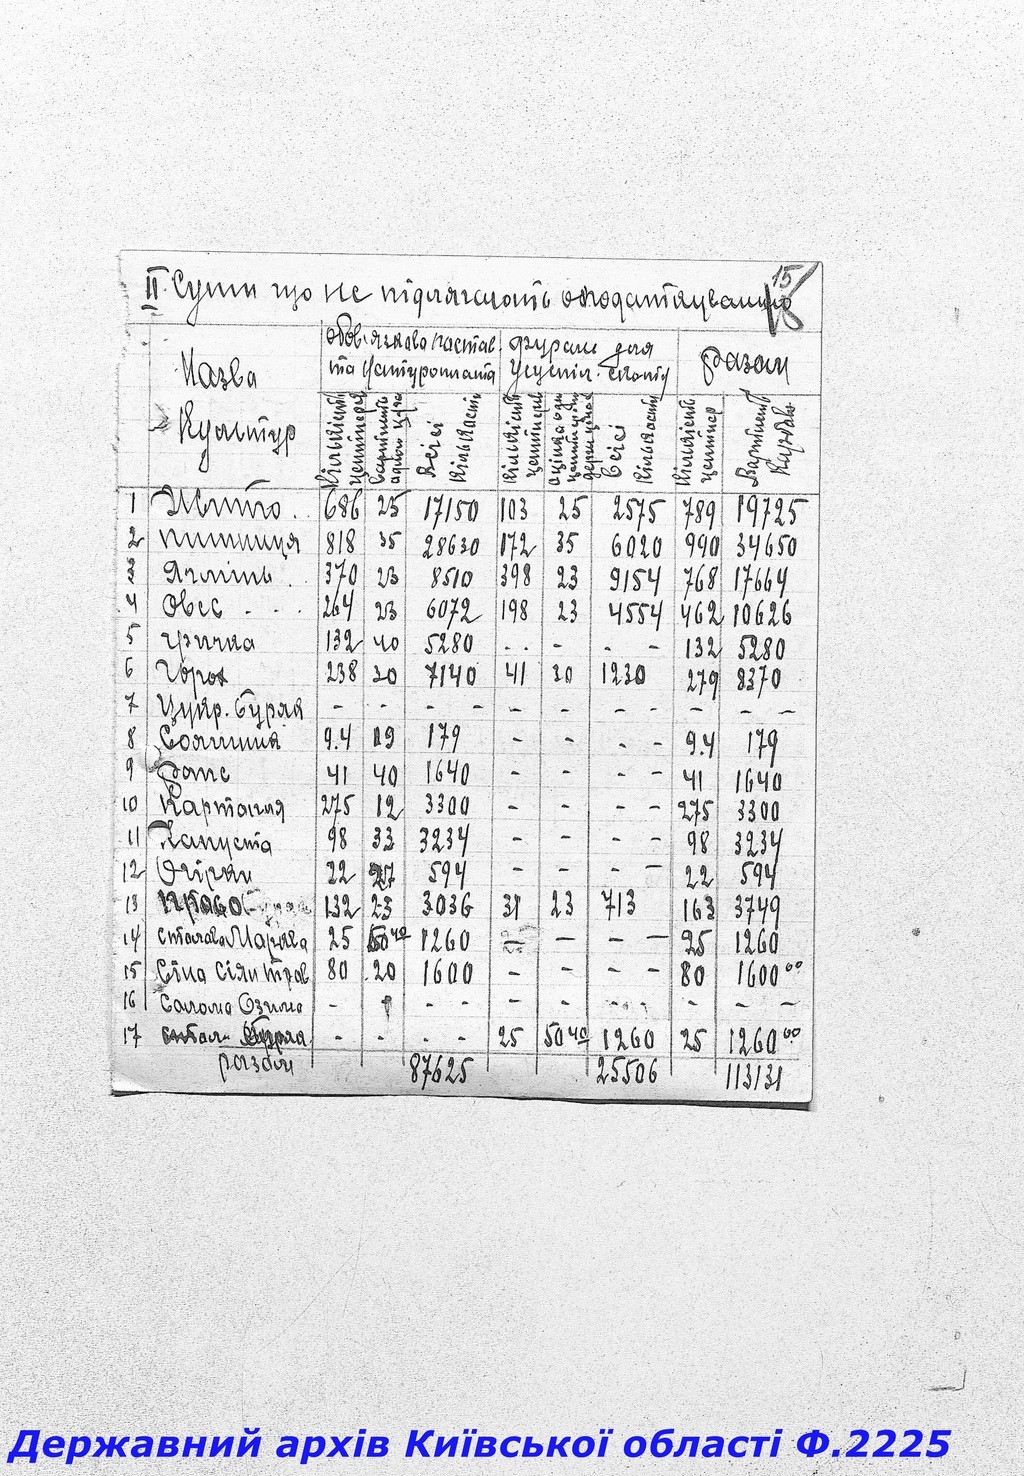 15
18
II. Суми що не підлягають оподаткуванню
Назва Культур обов'язкова постав. та натуроплата фураж для усуспіл. скоту разом
Кількість центнерів вартість одног цент. Всієї кількості Кількість центнерів оцінка один центнера держ ціною Всієї кількості Кількість центнер Вартість
1 Жито . . 686 25 17150 103 25 2575 789 19725
2 пшениця 818 35 28630 172 35 6020 990 34650
3 Ячмінь . . 370 23 8510 398 23 9154 768 17664
4 Овес . . . 264 23 6072 198 23 4554 462 10626
5 гречка 132 40 5280 - - - - 132 5280
6 Горох 238 30 7140 41 30 1230 279 8370
7 Цукр. буряк - - - - - - - - - - -
8 Соняшник 9.4 19 179 - - - - 9.4 179
9 рапс 41 40 1640 - - - - 41 1640
10 Картопля 275 12 3300 - - - - 275 3300
11 Капуста 98 33 3234 - - - - 98 3234
12 Огірки 22 27 594 - - - - 22 594
13 132 23 3036 31 23 713 163 3749
14 столова Морква 25 50 40 1260 - - - - 25 1260
15 Сіна Сіян трав 80 20 1600 - - - - 80 1600 00
16 Солома Озима - - - - - - - - - -
17 буряк - - - - 25 50 40 1260 25 1260 00
разом 87625 25506 113131
Державний архів Київської області Ф.2225